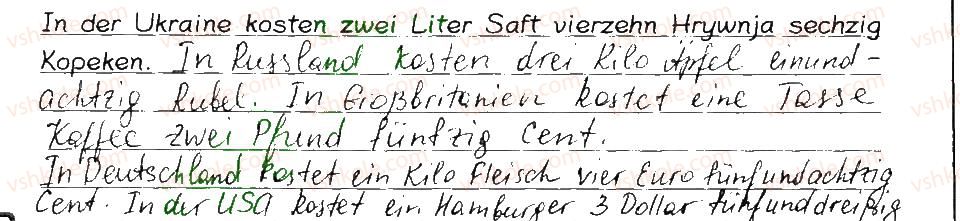 In der Ukraine kosten zwei Liter Saft vierzehn Hrywnja sechzig
Kopeken. In Russland kosten drei Kilo Äpfel einund-
achtzig Rubel. In Großbritanien kostet eine Tasse
Kaffee zwei Pfund fünfzig Cent.
In Deutschland kostet ein Kilo Fleisch vier Euro fünfundachtzig
Cent. In der USA kostet ein Hamburger 3 Dollar fünfunddreißig